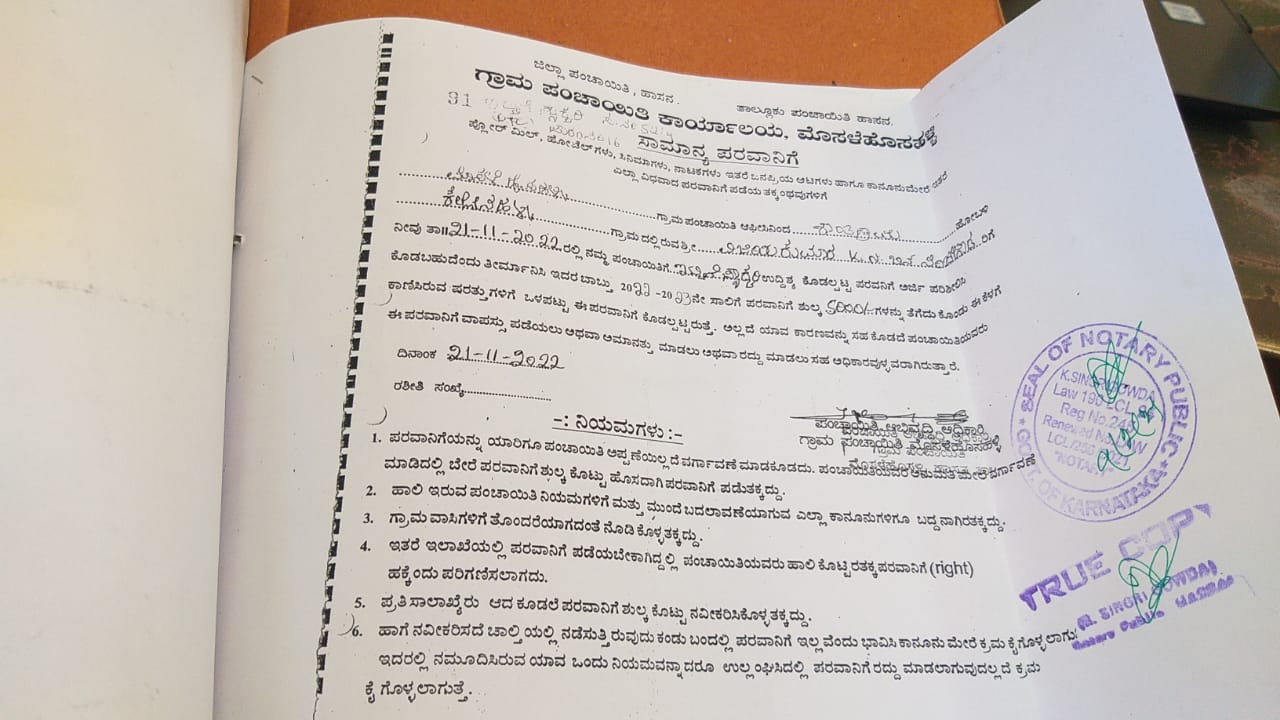 ಜಿಲ್ಲಾ ಪಂಚಾಯಿತಿ, ಹಾಸನ.
ತಾಲ್ಲೂಕು ಪಂಚಾಯಿತಿ ಹಾಸನ.
ಗ್ರಾಮ ಪಂಚಾಯಿತಿ ಕಾರ್ಯಾಲಯ, ಮೊಸಳೆಹೊಸಹಳ್ಳಿ
31
ಸಾಮಾನ್ಯ ಪರವಾನಿಗೆ
ಪ್ಲೋರ್ ಮಿಲ್, ಹೋಟೆಲ್‌ಗಳು, ಸಿನಿಮಾಗಳು, ನಾಟಕಗಳು ಇತರೆ ಜನಪ್ರಿಯ ಆಟಗಳು ಹಾಗೂ ಕಾನೂನುಮೇರೆ ಇತರೆ
ಎಲ್ಲಾ ವಿಧವಾದ ಪರವಾನಿಗೆ ಪಡೆಯ ತಕ್ಕಂಥವುಗಳಿಗೆ
ಗ್ರಾಮ ಪಂಚಾಯಿತಿ ಆಫೀಸಿನಿಂದ ಹೋಬಳಿ
ಗ್ರಾಮದಲ್ಲಿರುವ ಶ್ರೀ ವಿಜಯಕುಮಾರ K.N ಬಿನ್ ರಿಗೆ
ನೀವು ತಾ॥ 21-11-2022 ರಲ್ಲಿ ನಮ್ಮ ಪಂಚಾಯಿತಿಗೆ ಉದ್ದಿಶ್ಯ ಕೊಡಲ್ಪಟ್ಟ ಪರವನಿಗೆ ಅರ್ಜಿ ಪರಿಶೀಲಿಸಿ
ಕೊಡಬಹುದೆಂದು ತೀರ್ಮಾನಿಸಿ ಇದರ ಬಾಬ್ತು 2022-2023ನೇ ಸಾಲಿಗೆ ಪರವಾನಿಗೆ ಶುಲ್ಕ 5000/- ಗಳನ್ನು ತೆಗೆದು ಕೊಂಡು ಈ ಕೆಳಗೆ
ಕಾಣಿಸಿರುವ ಷರತ್ತುಗಳಿಗೆ ಒಳಪಟ್ಟು ಈ ಪರವಾನಿಗೆ ಕೊಡಲ್ಪಟ್ಟಿರುತ್ತೆ. ಅಲ್ಲದೆ ಯಾವ ಕಾರಣವನ್ನು ಸಹ ಕೊಡದೆ ಪಂಚಾಯಿತಿಯವರು
ಈ ಪರವಾನಿಗೆ ವಾಪಸ್ಸು ಪಡೆಯಲು ಅಥವಾ ಅಮಾನತ್ತು ಮಾಡಲು ಅಥವಾ ರದ್ದು ಮಾಡಲು ಸಹ ಅಧಿಕಾರವುಳ್ಳವರಾಗಿರುತ್ತಾರೆ.
ದಿನಾಂಕ 21-11-2022
ರಶೀತಿ ಸಂಖ್ಯೆ
ಪಂಚಾಯಿತಿ ಅಭಿವೃದ್ಧಿ ಅಧಿಕಾರಿ
ಗ್ರಾಮ ಪಂಚಾಯಿತಿ ಮೊಸಳೆಹೊಸಹಳ್ಳಿ
-: ನಿಯಮಗಳು :-
1. ಪರವಾನಿಗೆಯನ್ನು ಯಾರಿಗೂ ಪಂಚಾಯಿತಿ ಅಪ್ಪಣೆಯಿಲ್ಲದೆ ವರ್ಗಾವಣೆ ಮಾಡಕೂಡದು. ಪಂಚಾಯಿತಿಯವರ ಅನುಮತಿ ಮೇಲೆ ವರ್ಗಾವಣೆ
ಮಾಡಿದಲ್ಲಿ ಬೇರೆ ಪರವಾನಿಗೆ ಶುಲ್ಕ ಕೊಟ್ಟು ಹೊಸದಾಗಿ ಪರವಾನಿಗೆ ಪಡೆುತಕ್ಕದ್ದು.
2. ಹಾಲಿ ಇರುವ ಪಂಚಾಯಿತಿ ನಿಯಮಗಳಿಗೆ ಮತ್ತು ಮುಂದೆ ಬದಲಾವಣೆಯಾಗುವ ಎಲ್ಲಾ ಕಾನೂನುಗಳಿಗೂ ಬದ್ದನಾಗಿರತಕ್ಕದ್ದು.
3. ಗ್ರಾಮ ವಾಸಿಗಳಿಗೆ ತೊಂದರೆಯಾಗದಂತೆ ನೊಡಿ ಕೊಳ್ಳತಕ್ಕದ್ದು.
4. ಇತರೆ ಇಲಾಖೆಯಲ್ಲಿ ಪರವಾನಿಗೆ ಪಡೆಯಬೇಕಾಗಿದ್ದಲ್ಲಿ ಪಂಚಾಯಿತಿಯವರು ಹಾಲಿ ಕೊಟ್ಟಿರತಕ್ಕ ಪರವಾನಿಗೆ (right)
ಹಕ್ಕೆಂದು ಪರಿಗಣಿಸಲಾಗದು.
5. ಪ್ರತಿ ಸಾಲಾಖೈರು ಆದ ಕೂಡಲೆ ಪರವಾನಿಗೆ ಶುಲ್ಕ ಕೊಟ್ಟು ನವೀಕರಿಸಿಕೊಳ್ಳತಕ್ಕದ್ದು.
6. ಹಾಗೆ ನವೀಕರಿಸದೆ ಚಾಲ್ತಿಯಲ್ಲಿ ನಡೆಸುತ್ತಿರುವುದು ಕಂಡು ಬಂದಲ್ಲಿ ಪರವಾನಿಗೆ ಇಲ್ಲವೆಂದು ಭಾವಿಸಿ ಕಾನೂನು ಮೇರೆ ಕ್ರಮ ಕೈಗೊಳ್ಳಲಾಗು
ಇದರಲ್ಲಿ ನಮೂದಿಸಿರುವ ಯಾವ ಒಂದು ನಿಯಮವನ್ನಾದರೂ ಉಲ್ಲಂಘಿಸಿದಲ್ಲಿ ಪರವಾನಿಗೆ ರದ್ದು ಮಾಡಲಾಗುವುದಲ್ಲದೆ ಕ್ರಮ
ಕೈಗೊಳ್ಳಲಾಗುತ್ತೆ.
SEAL OF NOTARY PUBLIC
GOVT. OF KARNATAKA
K.SINGRI GOWDA
Law 190 LCL
Reg No.
Renewed No.
"NOTARY"
TRUE COPY
SINGRI GOWDA)
Notary Public HASSAN